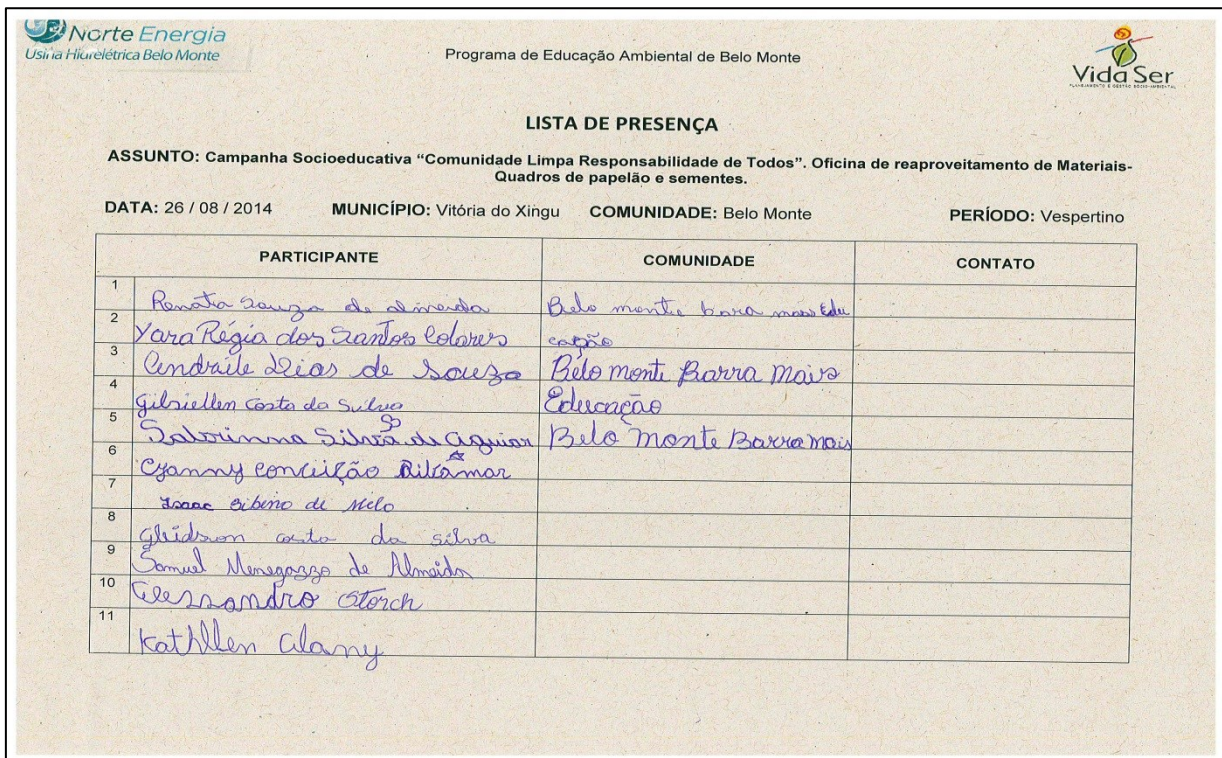 Norte Energia
Usina Hidrelétrica Belo Monte
Programa de Educação Ambiental de Belo Monte
Vida Ser
PLANEJAMENTO E GESTÃO SÓCIO-AMBIENTAL
LISTA DE PRESENÇA
ASSUNTO: Campanha Socioeducativa “Comunidade Limpa Responsabilidade de Todos”. Oficina de reaproveitamento de Materiais-
Quadros de papelão e sementes.
DATA: 26 / 08 / 2014 MUNICÍPIO: Vitória do Xingu COMUNIDADE: Belo Monte PERÍODO: Vespertino
PARTICIPANTE COMUNIDADE CONTATO
1 Renata Souza de almeida Belo monte bara mais Edu
2 Yara Régia dos Santos Colares cação
3 Dias de Souza Belo monte Barra Mais
4 Gibriellen Costa da Silva Educação
5 Sabrinna Silva de aguiar Belo monte Barra mais
6 conceição
7 Isaac ribeiro de Melo
8 Gleidson costa da silva
9 Samuel Menegazzo de Almeida
10 Alessandro Storch
11 Kathllen alany